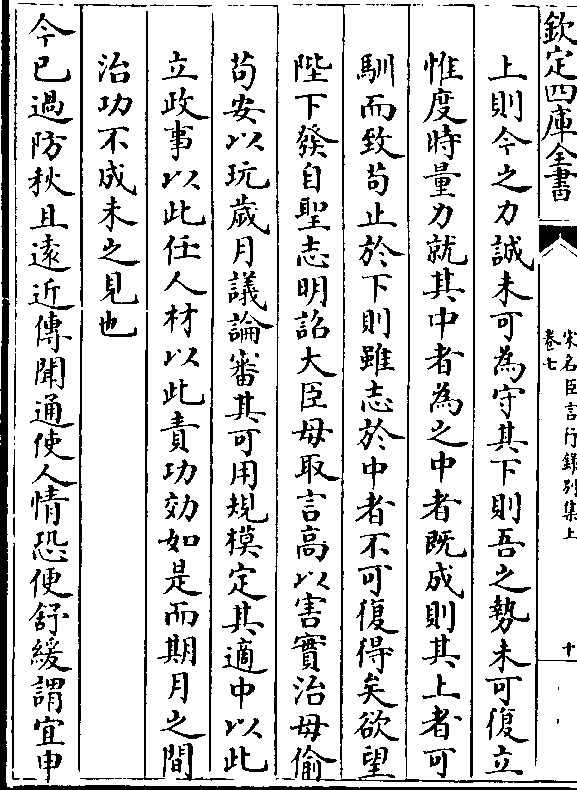 欽定四庫全書
宋名臣言行録別集上
卷七
十
上則今之力誠未可為守其下則吾之勢未可復立
惟度時量力就其中者為之中者既成則其上者可
馴而致茍止於下則雖志於中者不可復得矣欲望
陛下發自聖志明詔大臣毋取言高以害實治毋偷
茍安以玩歲月議論審其可用規模定其適中以此
立政事以此任人材以此責功効如是而期月之間
治功不成未之見也
今已過防秋且遠近傳聞通使人情恐便舒緩謂宜申